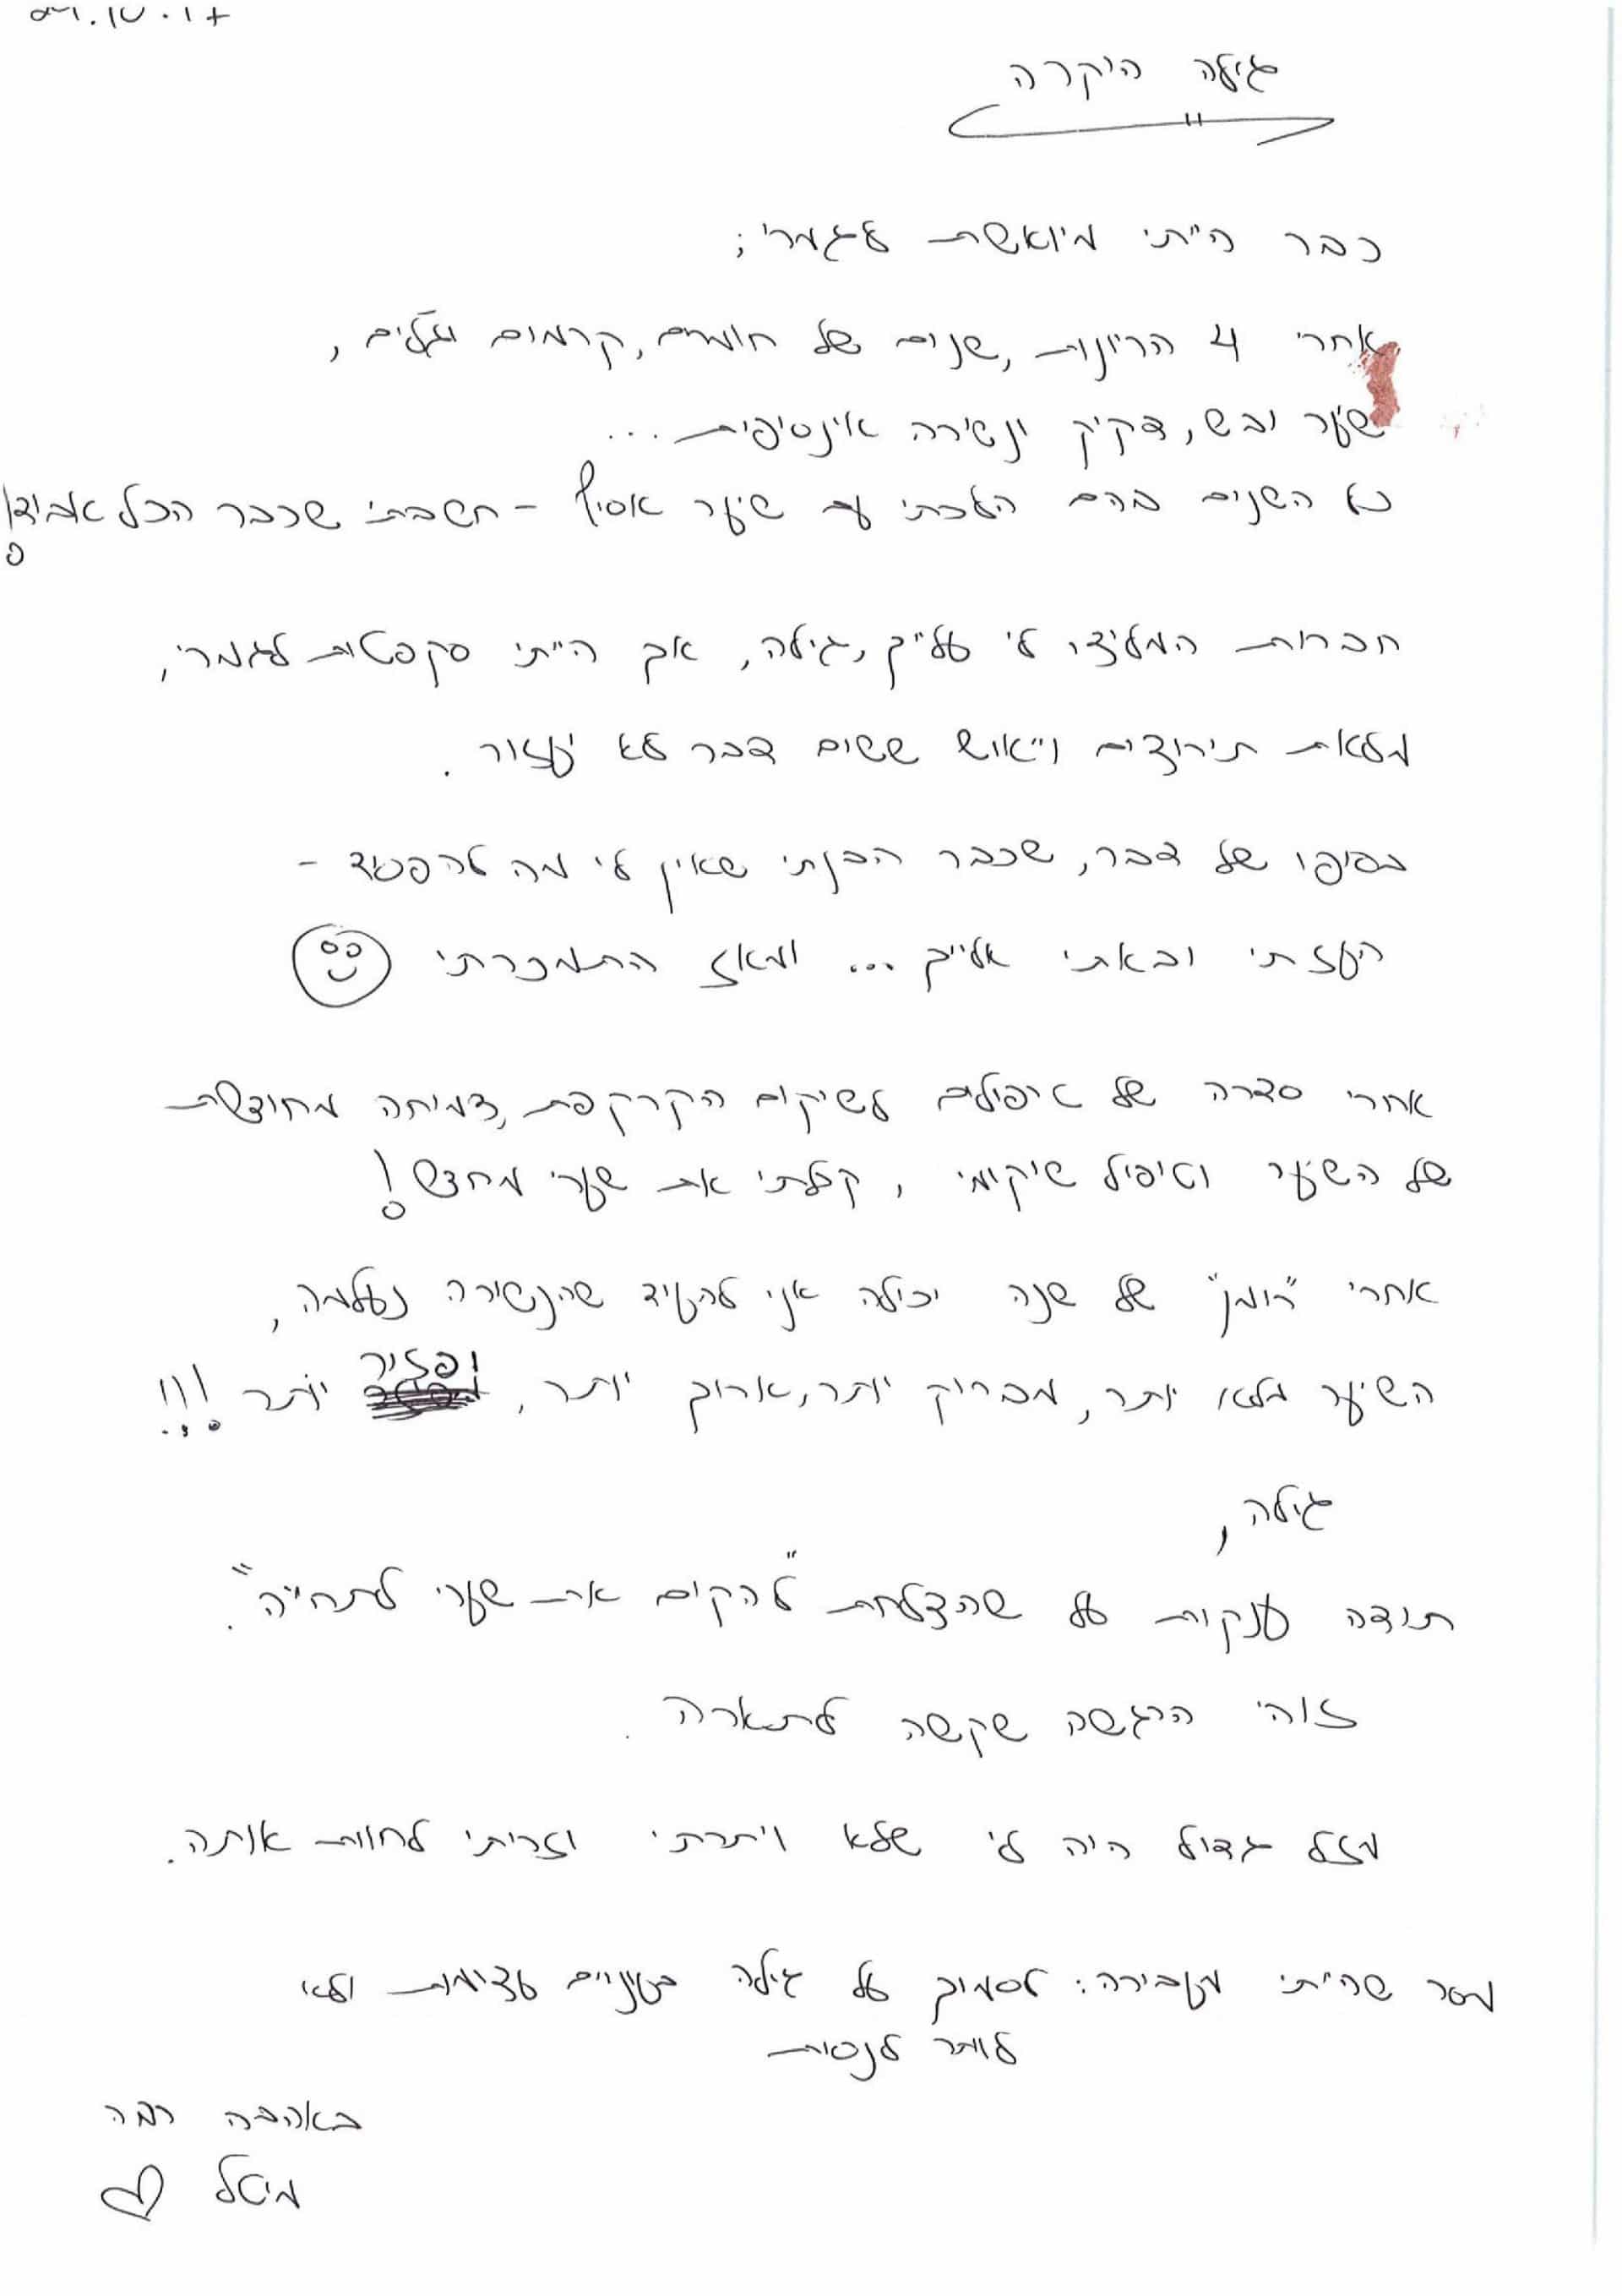 גילה היקרה
כבר הייתי מיואשת לגמרי;
אחרי 4 הריונות, שנים של חומרים, קרמים וגלים,
שיער יבש, דקיק ונשירה אינסיפית...
כל השנים בהם הלכתי עם שיער אסוף - חשבתי שכבר הכל אבוד!
חברות המליצו לי עלייך, גילה, אך הייתי סקפטית לגמרי,
מלאת תירוצים וייאוש ששום דבר לא יעזור.
בסופו של דבר, שכבר הבנתי שאין לי מה להפסיד -
העזתי ובאתי אלייך ... ומאז התמכרתי
אחרי סדרה של טיפולים לשיקום הקרקפת, צמיחה מחודשת
של השיער וטיפול שיקומי, קבלתי את שערי מחדש!
אחרי "רומן" של שנה יכולה אני להעיד שהנשירה נעלמה,
השיער מלא יותר, מבריק יותר, ארוך יותר, ופזיר יותר!!!
גילה,
תודה ענקית על שהצלחת "להקים את שערי לתחייה".
זוהי הרגשה שקשה לתארה.
מזל גדול היה לי שלא ויתרתי וזכיתי לחוות אותה.
מסר שהייתי מעבירה: לסמוך על גילה בעיניים עצומות ולא
לוותר לנסות
באהבה רבה
מיטל